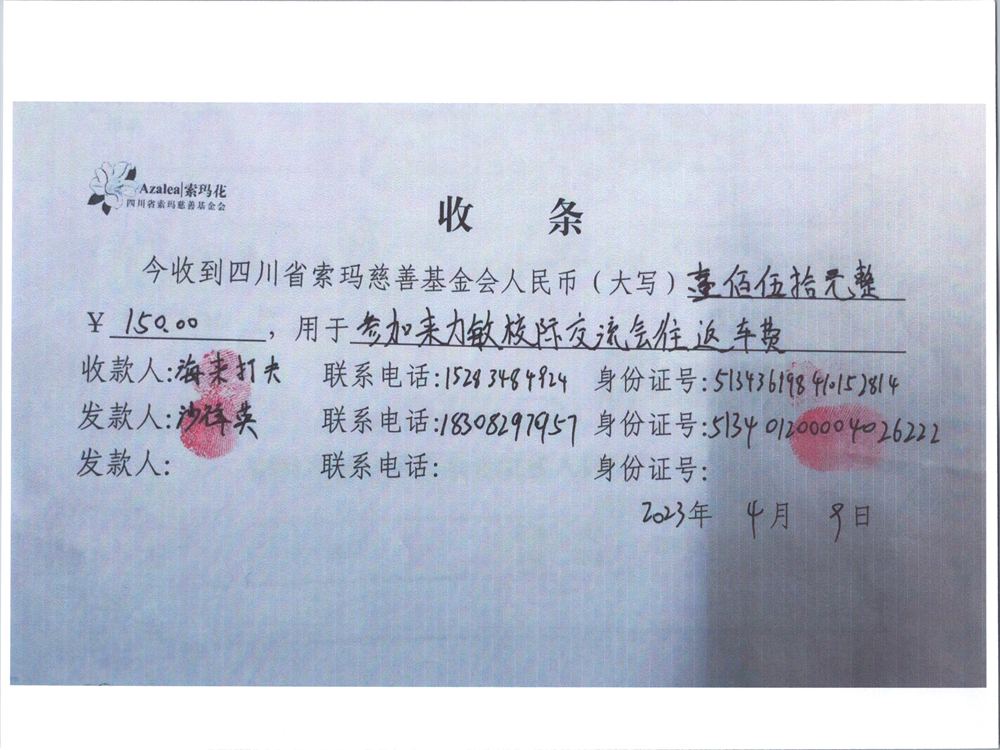 Azalea|索玛花
四川省索玛慈善基金会
收 条
今收到四川省索玛慈善基金会人民币（大写）壹佰伍拾元整
¥ 150.00 ，用于参加来力敏校际交流会往返车费
收款人:海来打夫 联系电话:15283484924 身份证号:513436198410152814
发款人:沙英 联系电话:18308297957 身份证号:513401200004026222
发款人: 联系电话: 身份证号:
2023年 4月 9日